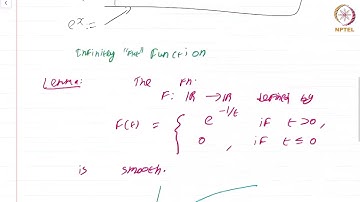 NPTEL
eˣ =
Infinitely "flat" function
Lemma: The fn:
F: ℝ → ℝ defined by
F(t) = { e^{-1/t} if t > 0,
0, if t ≤ 0
is smooth.